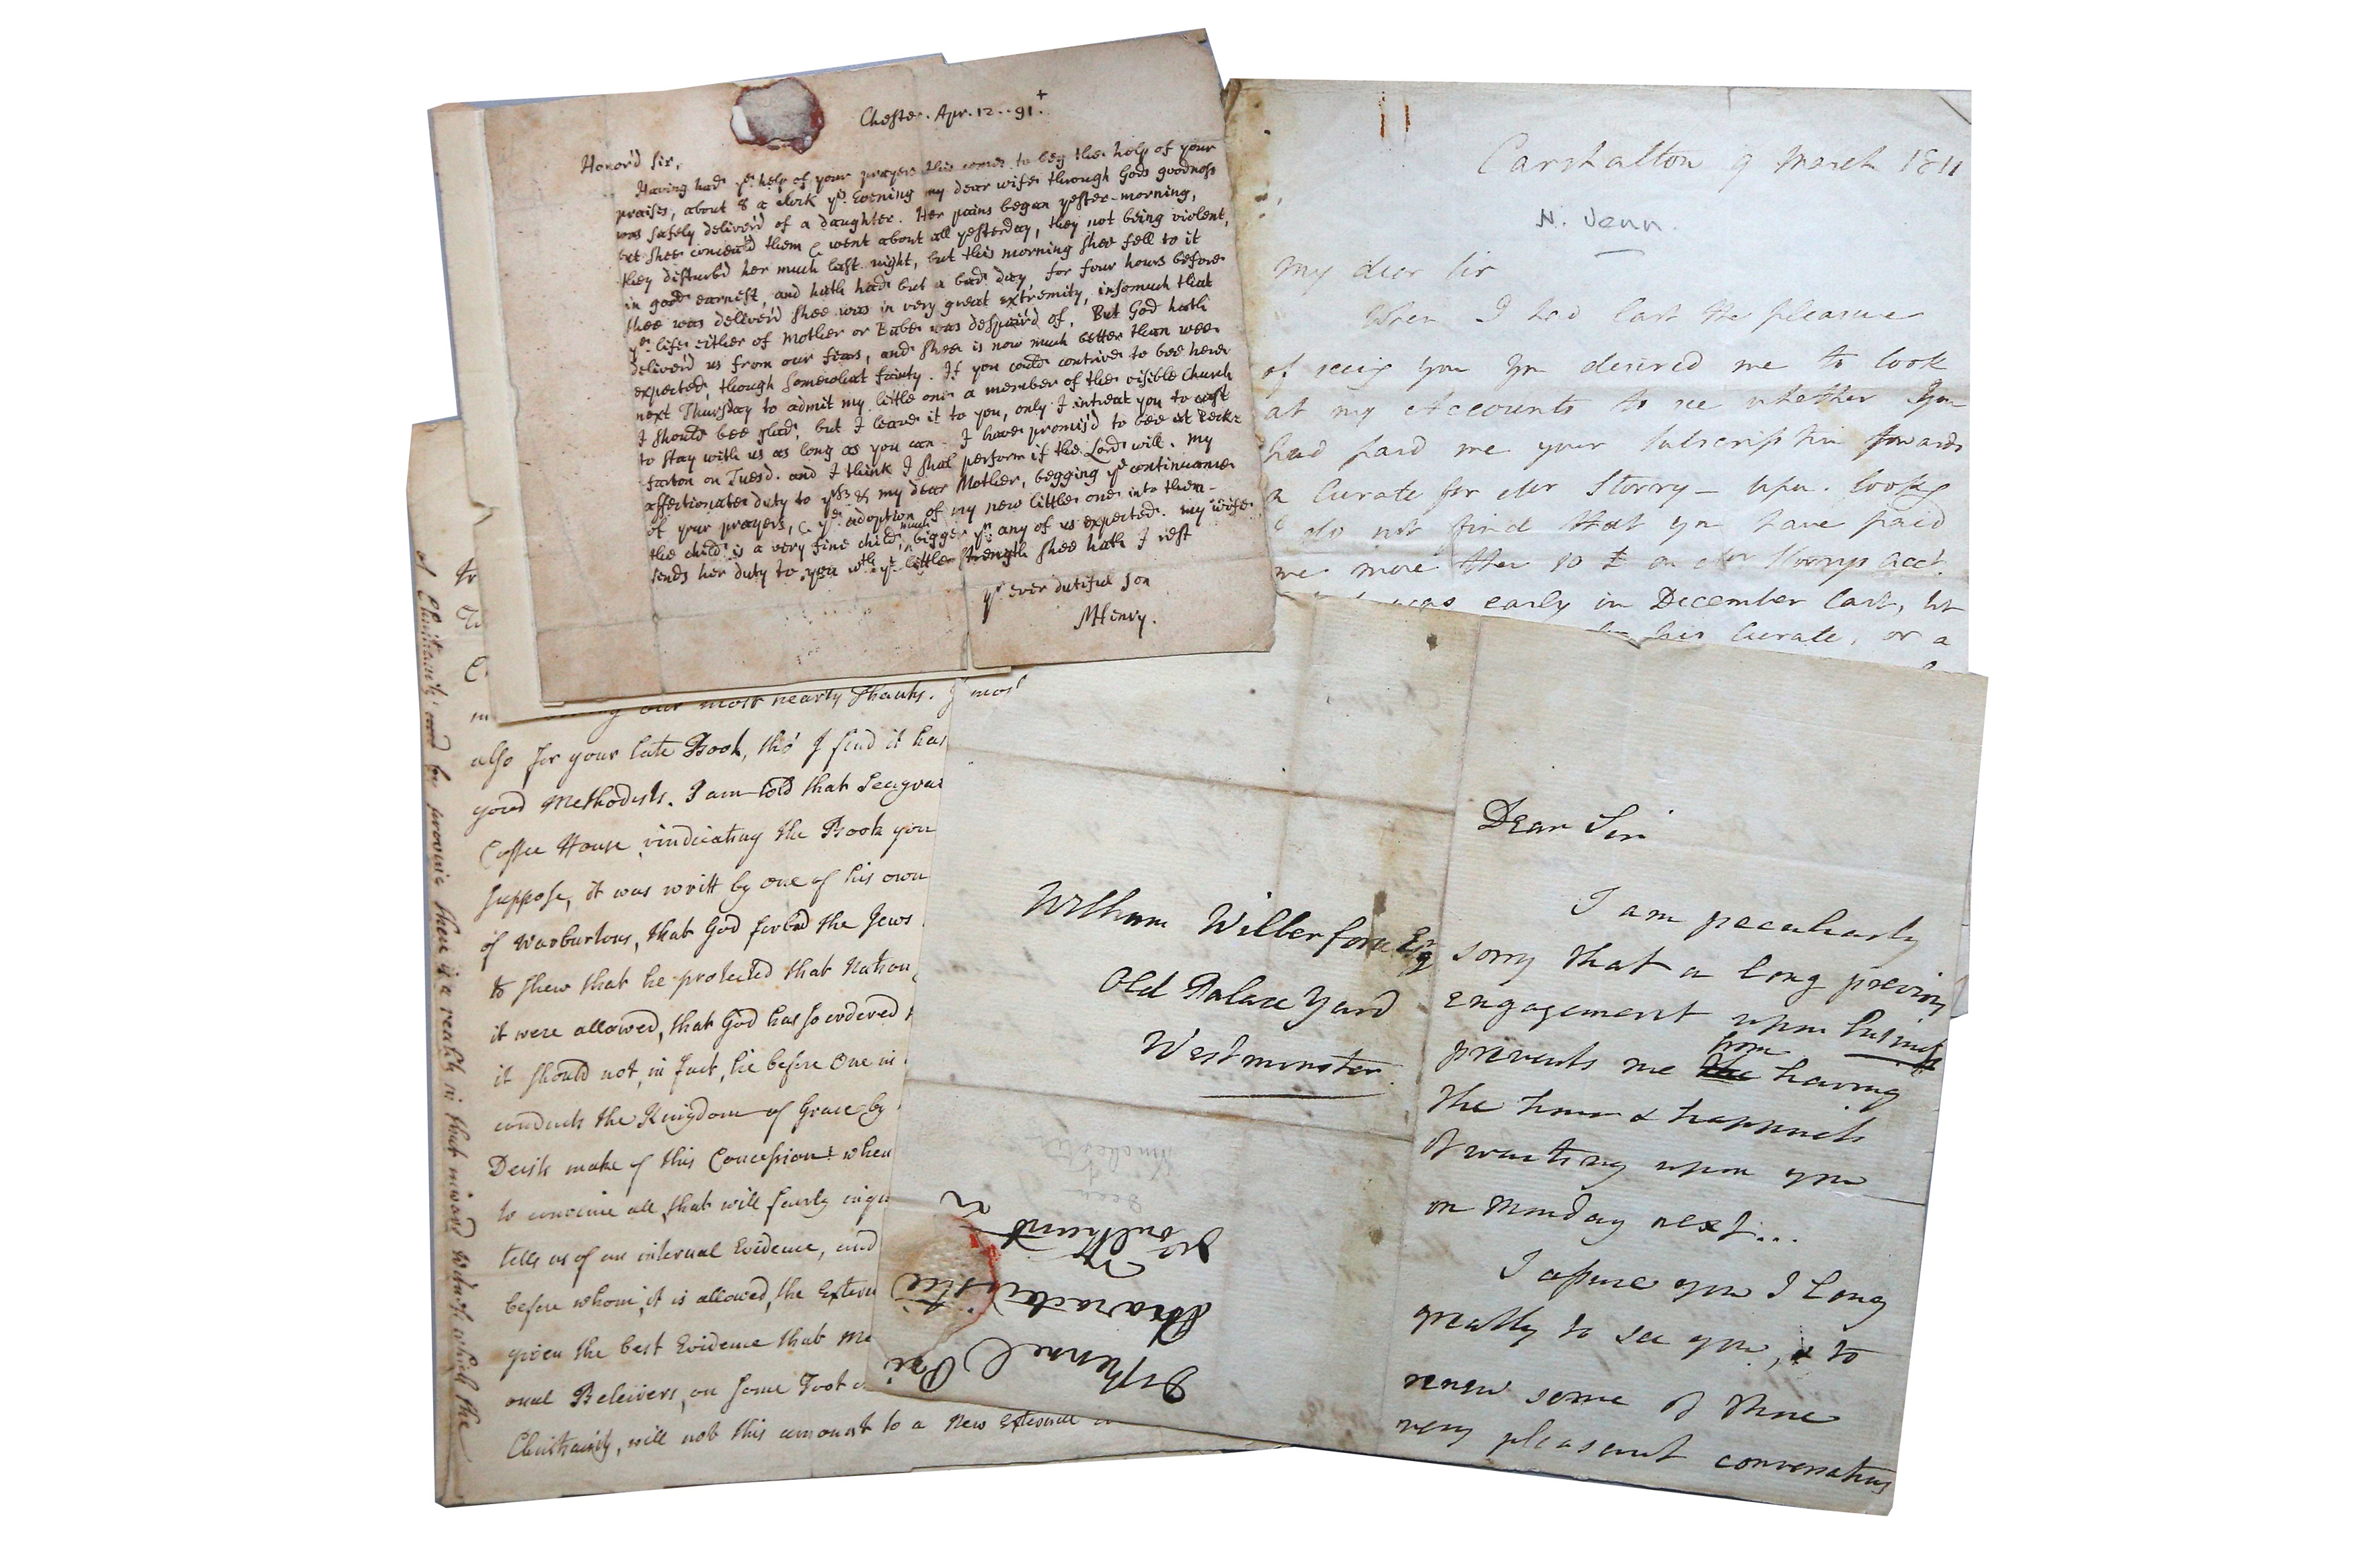 Chester. Apr. 12. 91.
Honor'd Sir,
Having had yr. help of your prayers this comes to beg the help of your
praises, about 8 a clock ys. Evening my dear wife through Gods goodness
was safely deliver'd of a daughter. Her pains began yester-morning,
but shee conceal'd them & went about all yesterday, they not being violent,
they disturb'd her much last night, but this morning shee fell to it
in good earnest, and hath had but a bad day for four hours before
shee was deliver'd shee was in very great extremity, insomuch that
ye. life either of Mother or Babe was despair'd of. But God hath
deliver'd us from our fears, and shee is now much better than wee
expected, though somewhat fainty. If you could contrive to bee here
next Thursday to admit my little one a member of the visible Church
I should bee glad, but I leave it to you, only I intreat you to
to stay with us as long as you can. I have promis'd to bee at Peck=
farton on Tuesd. and I think I shal perform if the Lord will. My
affectionate duty to yrs. & my dear Mother, begging ye continuance
of your prayers, & ye. adoption of my new little one into them -
the child is a very fine child, much bigger yn. any of us expected. my wife
sends her duty to you wth. yt. little strength shee hath I rest
yr ever dutiful son
MHenry.
Carshalton 9 March 1811
My dear Sir
When I had last the pleasure
of seeing you you desired me to look
at my Accounts to see whether you
had paid me your Subscription towards
a Curate for Mr Storry - upon looking
do not find that you have paid
me more than 10 £ on Mr Storrys acct.
was early in December last, but
his Curate, or a
our most hearty thanks. I most
also for your late Book, tho' I find it has
good Methodists. I am told that Seagrave
Coffee House vindicating the Book you
suppose, it was writt by one of his own
of Warburtons, that God forbad the Jews
to shew that he protected that Nation
it were allowed, that God has so ordered
it should not, in Fact, lie before One in
conducts the Kingdom of Grace by
Deists make of this Concession: when
to convince all that will fairly inqu
tells us of an internal Evidence, and
before whom, it is allowed, the Extern
given the best Evidence that Me
onal Beleivers, on some Foot
Christianity, will not this amount to a New External
of Christianity and by proving there is a reality in that inward which the
William Wilberforce Esqr
Old Palace Yard
Westminster
Dear Sir
I am peculiarly
sorry that a long previous
engagement upon business
prevents me from having
the honor & happiness
of waiting upon you
on Monday next...
I assure you I long
greatly to see you, & to
renew some of those
very pleasant conversations